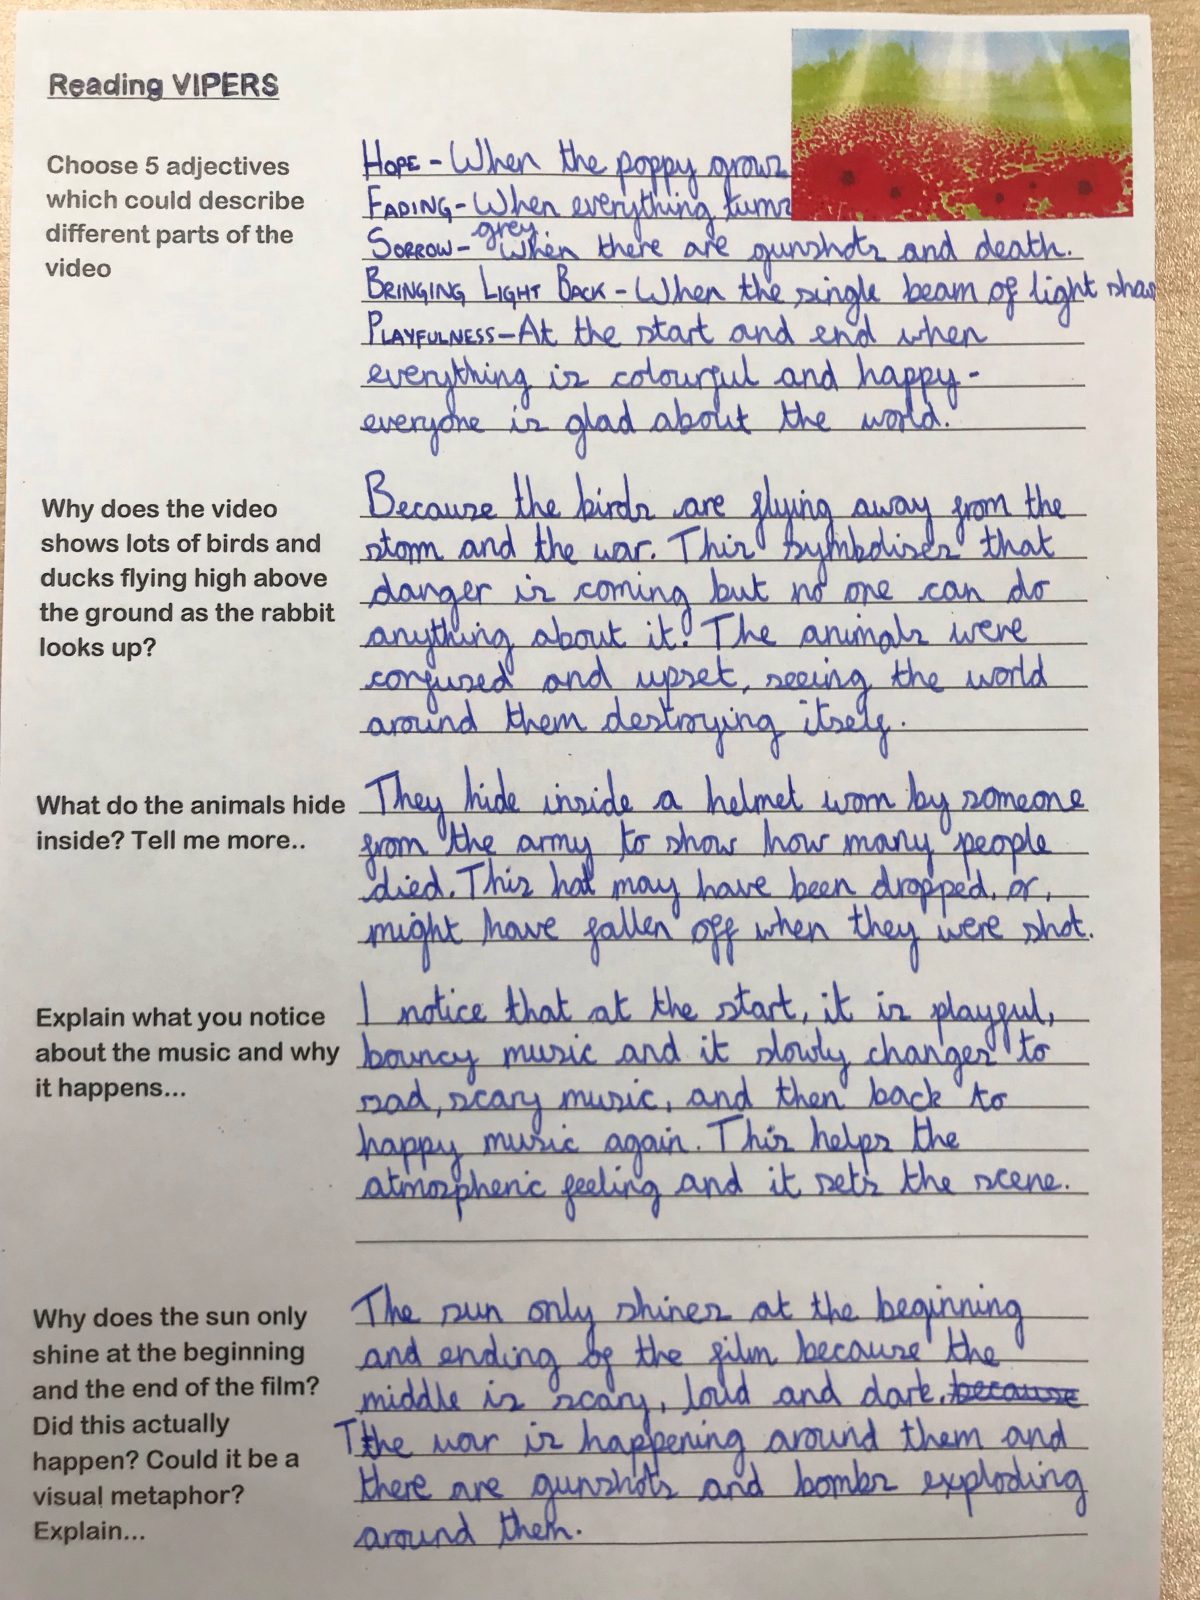 Reading VIPERS
Choose 5 adjectives
which could describe
different parts of the
video
HOPE - When the poppy grows
FADING - When everything turns
grey.
SORROW - When there are gunshots and death.
BRINGING LIGHT BACK - When the single beam of light
PLAYFULNESS - At the start and end when
everything is colourful and happy -
everyone is glad about the world.
Why does the video
shows lots of birds and
ducks flying high above
the ground as the rabbit
looks up?
Because the birds are flying away from the
storm and the war. This symbolises that
danger is coming but no one can do
anything about it. The animals were
confused and upset, seeing the world
around them destroying itself.
What do the animals hide
inside? Tell me more..
They hide inside a helmet worn by someone
from the army to show how many people
died. This hat may have been dropped, or,
might have fallen off when they were shot.
Explain what you notice
about the music and why
it happens...
I notice that at the start, it is playful,
bouncy music and it slowly changes to
sad, scary music, and then back to
happy music again. This helps the
atmospheric feeling and it sets the scene.
Why does the sun only
shine at the beginning
and the end of the film?
Did this actually
happen? Could it be a
visual metaphor?
Explain...
The sun only shines at the beginning
and ending of the film because the
middle is scary, loud and dark. because
The war is happening around them and
there are gunshots and bombs exploding
around them.